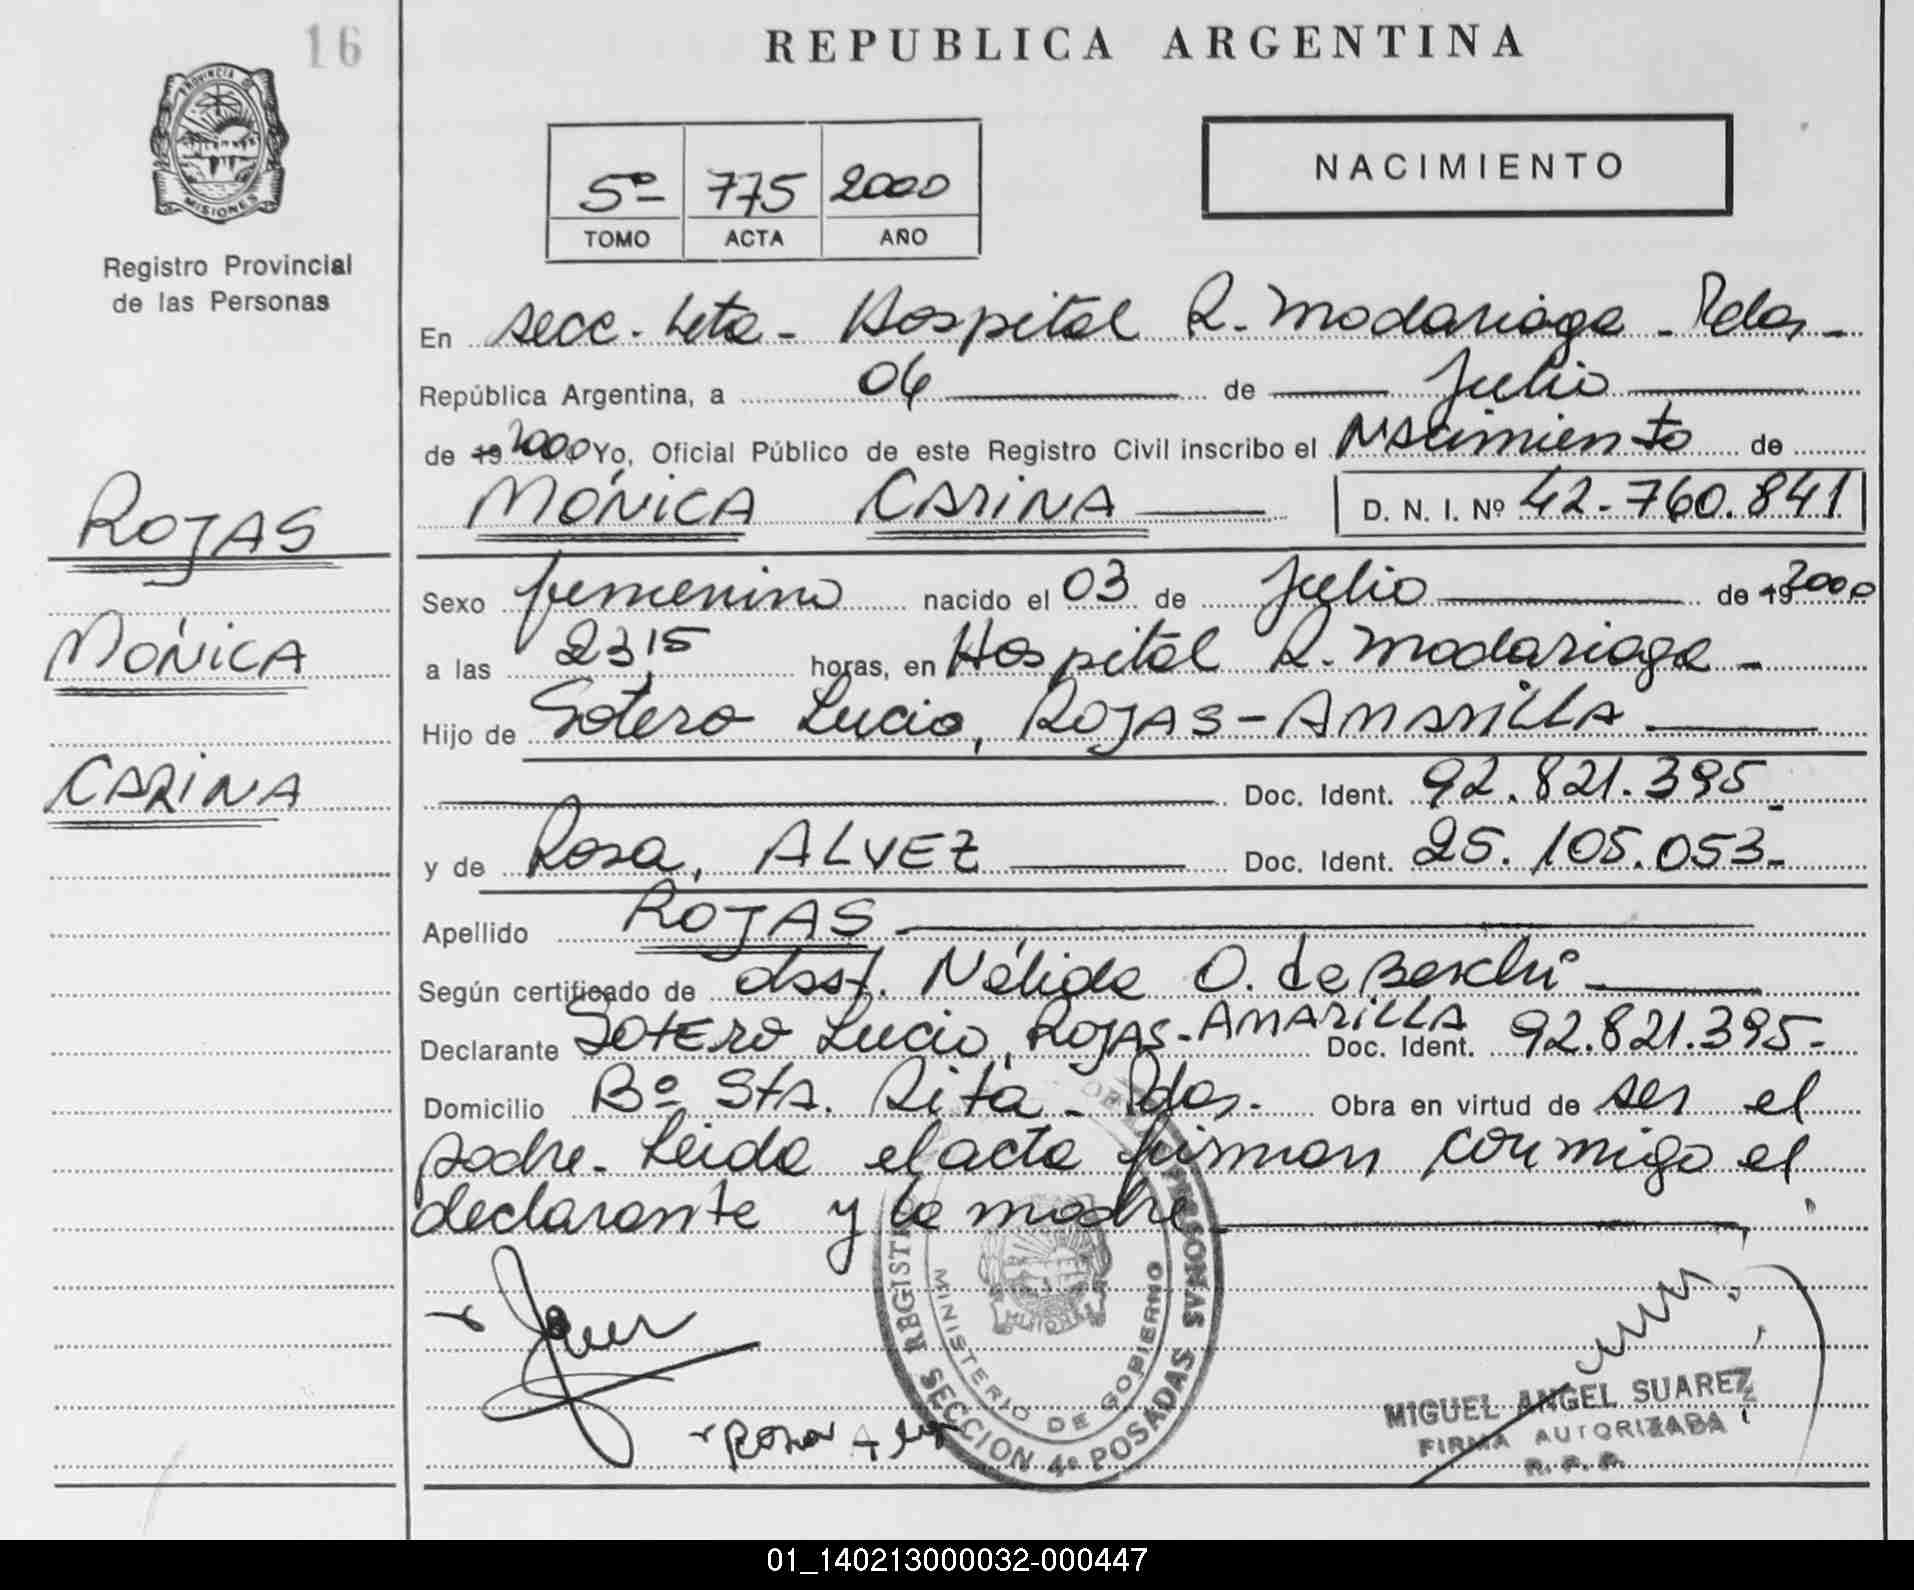 16
REPUBLICA ARGENTINA
PROVINCIA D
MISIONES
Registro Provincial
de las Personas
5º 775 2000
TOMO ACTA AÑO
NACIMIENTO
En secc. 4ta - Hospital R. Madariaga - Pdas -
República Argentina, a 04 de Julio
de 19 2000 Yo, Oficial Público de este Registro Civil inscribo el Nacimiento de
MÓNICA CARINA D. N. I. Nº 42.760.841
ROJAS
Sexo femenino nacido el 03 de Julio de 19 2000
MÓNICA
a las 23 15 horas, en Hospital R. Madariaga -
Hijo de Sotero Lucio, ROJAS - AMARILLA
CARINA
Doc. Ident. 92.821.395 -
y de Rosa, ALVEZ Doc. Ident. 25.105.053 -
Apellido ROJAS
Según certificado de Nélida O. de
Declarante SOTERO Lucio, ROJAS - AMARILLA Doc. Ident. 92.821.395 -
Domicilio Bº Sta. Rita - Pdas. Obra en virtud de ser el
padre. Leida el acta firman conmigo el
declarante y la madre
REGISTRO DE LAS PERSONAS
MINISTERIO DE GOBIERNO
SECCION 4ª POSADAS
Rosa
MIGUEL ANGEL SUAREZ
FIRMA AUTORIZADA
R. P. P.
01_140213000032-000447